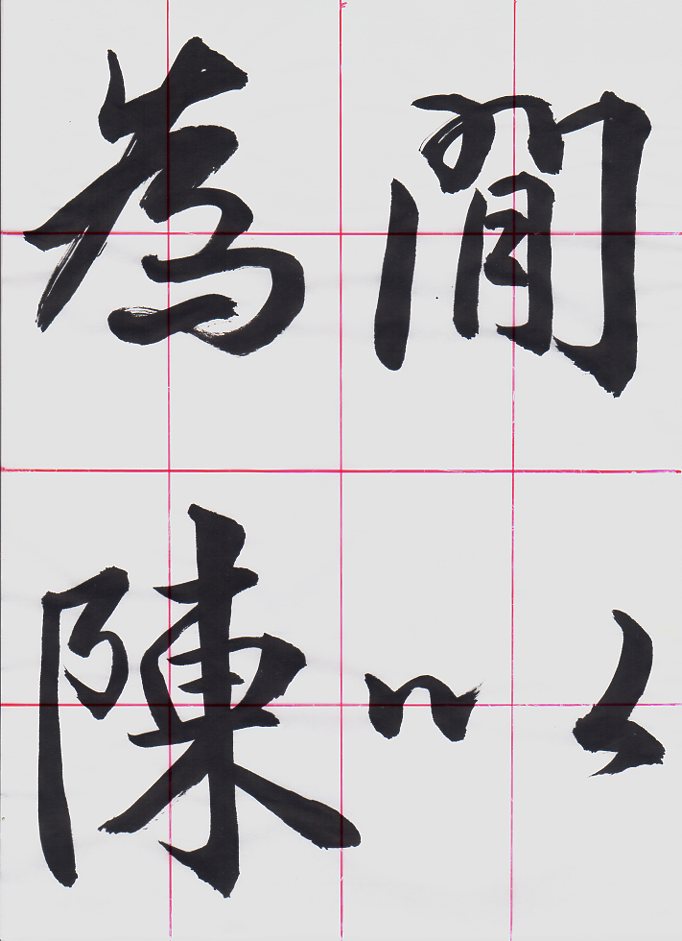 閒以
為陳